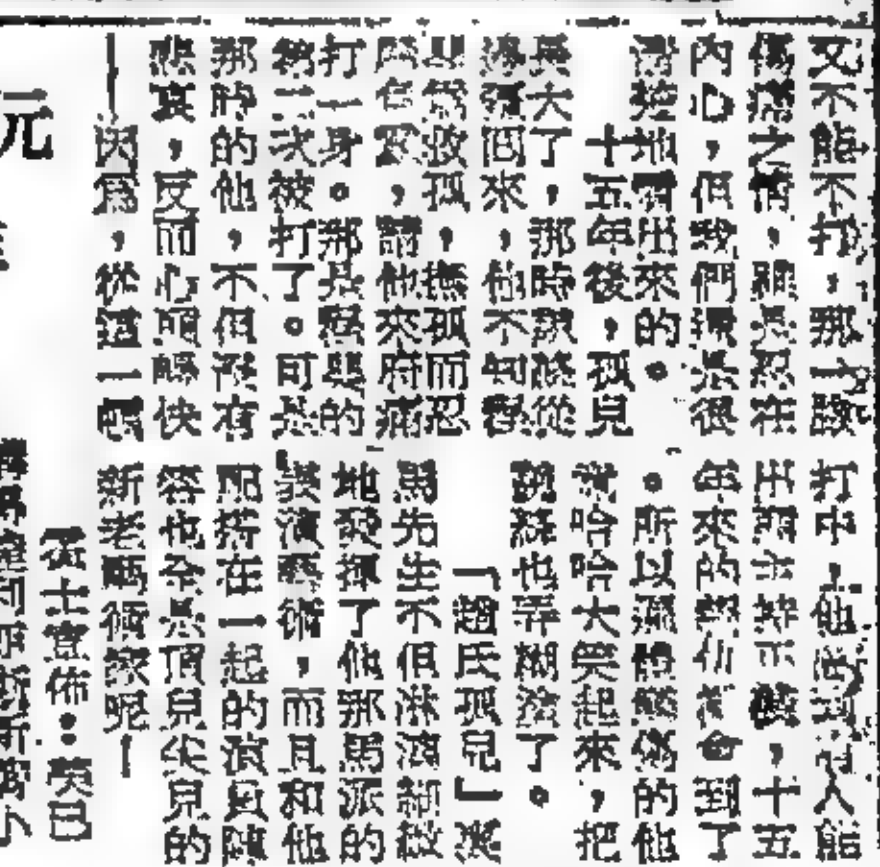 又不能不打，那一段
傷痛之情，雖是忍在
內心，但我們還是很
清楚地看出來的。
十五年後，孤兒
長大了，那時魏絳從
邊疆回來，他不知程
嬰為救孤，撫孤而忍
，請他來府痛
打一身。那是程嬰的
第二次被打了。可是
那時的他，不但沒有
悲哀，反而心頭暢快
——因爲，從這一頓
打中，他看到有人能
出頭主持正義，十五
年來的到了
。所以遍體鱗傷的他
哈哈大笑起來，把
魏絳也弄糊塗了。
「趙氏孤兒」
馬先生不但淋漓細緻
地發揮了他那馬派的
表演藝術，而且和他
配搭在一起的演員陣
容也全是頂兒尖兒的
新老藝術家呢！
士宣佈：